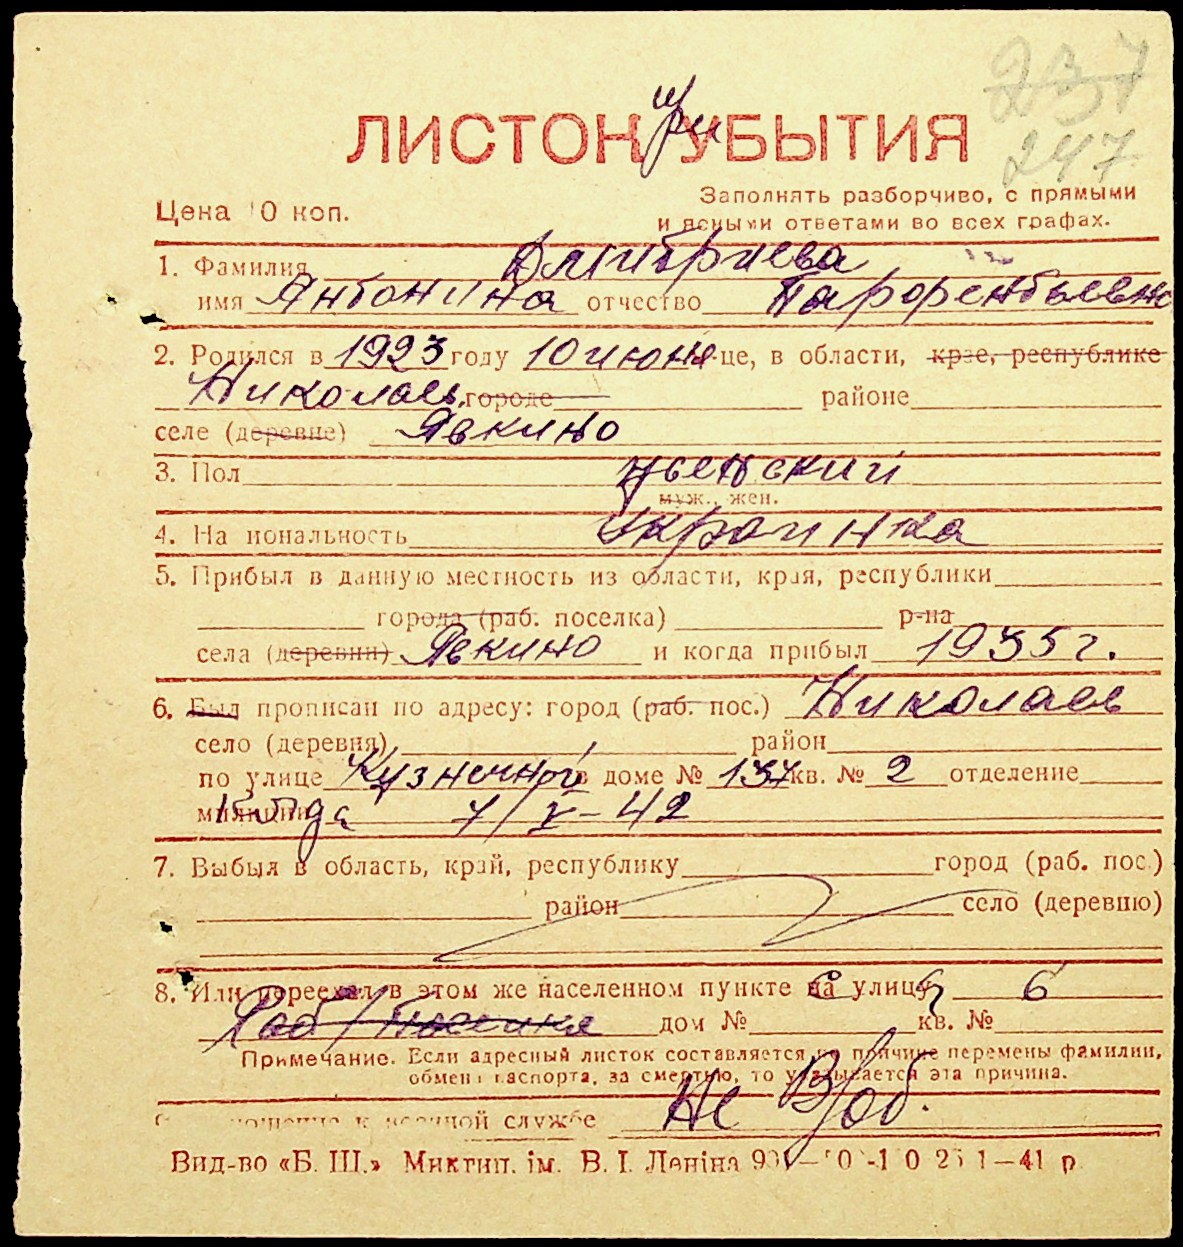 237
247
ЛИСТОК при УБЫТИЯ
Цена 10 коп.
Заполнять разборчиво, с прямыми
и ясными ответами во всех графах.
1. Фамилия Дмитриева
имя Антонина отчество Парфентьевна
2. Родился в 1923 году 10 июня це, в области, крае, республике
Николаев, городе районе
селе (деревне) Явкино
3. Пол женский
муж., жен.
4. На иональность Украинка
5. Прибыл в данную местность из области, края, республики
города (раб. поселка) р-на
села (деревни) Явкино и когда прибыл 1935 г.
6. Был прописан по адресу: город (раб. пос.) Николаев
село (деревня) район
по улице Кузнечной в доме № 137 кв. № 2 отделение
милиции Когда 7/V-42
7. Выбыл в область, край, республику город (раб. пос.)
район село (деревню)
8. Или переехал в этом же населенном пункте на улицу 6
Раб/Поселка дом № кв. №
Примечание. Если адресный листок составляется по причине перемены фамилии,
обмена паспорта, за смертью, то указывается эта причина.
ношение к военной службе Не В/об.
Вид-во «Б. Ш.» Миктип. ім. В. І. Леніна 1—41 р.